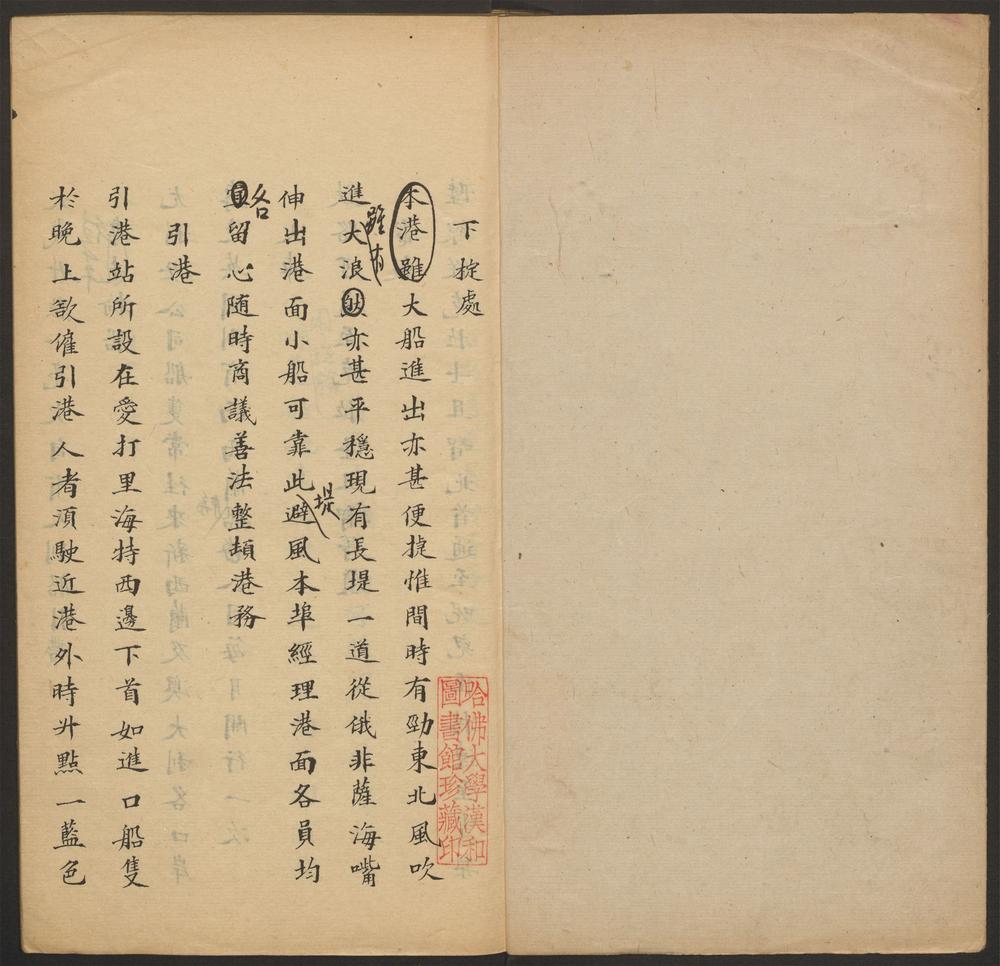 下椗處
本港雖大船進出亦甚便㨗惟間時有勁東北風吹
進大浪雖有然亦甚平穩現有長堤一道從俄非薩海嘴
伸出港面小船可靠此避堤風本埠經理港面各員均
宜畧留心随時商議善法整頓港務
引港
引港站所設在愛打里海持西邊下首如進口船隻
於晚上欲僱引港人者湏駛近港外時升點一藍色
哈佛大學漢和
圖書館珍藏印